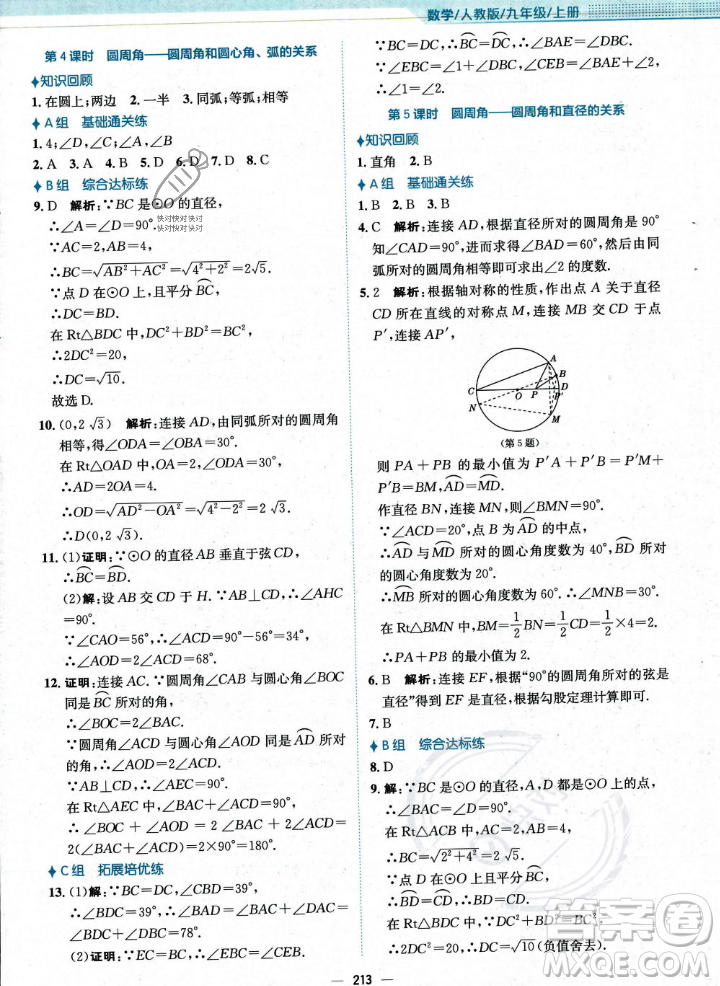 数学/人教版/九年级/上册
第4课时 圆周角——圆周角和圆心角、弧的关系
知识回顾
1. 在圆上;两边 2. 一半 3. 同弧;等弧;相等
A组 基础通关练
1. 4;∠D,∠A,∠B
2. A 3. A 4. B 5. D 6. D 7. D 8. C
B组 综合达标练
9. D 解析:∵BC是⊙O的直径,
∴∠A=∠D=90°.
∵AB=2,AC=4,
∴BC=√(AB²+AC²)=√(4²+2²)=2√5.
∵点D在⊙O上,且平分⌒BC,
∴DC=BD.
在Rt△BDC中,DC²+BD²=BC²,
∴2DC²=20,
∴DC=√10.
故选D.
10. (0,2√3) 解析:连接AD,由同弧所对的圆周角
相等,得∠ODA=∠OBA=30°.
在Rt△OAD中,OA=2,
∴AD=2OA=4.
∴OD=√(AD²−OA²)=√(4²−2²)=2√3.
∴D(0,2√3)
11. (1)证明:∵⊙O的直径AB垂直于弦CD,
∴⌒BC=⌒BD.
(2)解:设AB交CD于H.∵AB⊥CD,∴∠AHC
=90°.
∵∠CAO=56°,∴∠ACD=90°−56°=34°.
∴∠AOD=2∠ACD=68°.
12. 证明:连接AC.∵圆周角∠CAB与圆心角∠BOC
同是⌒BC所对的角,
∴∠BOC=2∠BAC.
∵圆周角∠ACD与圆心角∠AOD同是⌒AD所对
的角,∴∠AOD=2∠ACD.
∵AB⊥CD,∴∠AEC=90°.
在Rt△AEC中,∠BAC+∠ACD=90°.
∴∠BOC+∠AOD=2∠BAC+2∠ACD=
2(∠BAC+∠ACD)=2×90°=180°.
C组 拓展培优练
13. (1)解:∵BC=DC,∠CBD=39°,
∴∠BDC=∠CBD=39°,
∴∠BAC=∠BDC=39°.
(2)证明:∵EC=BC,∴∠CBE=∠CEB.
∵⌒BC=⌒DC,∴∠BAC=∠BDC.
∵∠BEC=∠2+∠BAC,∠CBE=∠1+∠CBD,
∴∠2=∠1.
第5课时 圆周角——圆周角和直径的关系
知识回顾
1. 直角 2. B
A组 基础通关练
1. B 2. B 3. B
4. C 解析:连接AD,根据直径所对的圆周角是90°
知∠CAD=90°,进而求得∠D=60°,然后由同
弧所对的圆周角相等即可得出∠2的度数.
5. 2 解析:根据轴对称的性质,作出点A关于直径
CD所在直线的对称点M,连接MB交CD于点
P′,连接AP′,
A
B
C
O
P
D
P′
N
M
(第5题)
则PA+PB的最小值为P′A+P′B=P′M+
P′B=BM,⌒AD=⌒MD.
作直径BN,连接MN,则∠BMN=90°.
∵∠ACD=20°,点B为⌒AD的中点,
∴⌒AD与⌒MD所对的圆心角度数为40°,⌒BD所对
的圆心角度数为20°.
∴⌒MB所对的圆心角度数为60°,∴∠MNB=30°.
在Rt△BMN中,BM=1/2BN=1/2CD=1/2×4=
2.∴PA+PB的最小值为2.
6. B 解析:连接EF,根据“90°的圆周角所对的弦是
直径”得到EF是直径,根据勾股定理计算即可.
7. B
B组 综合达标练
8. D
9. 解:∵BC是⊙O的直径,点A、D在⊙O上,
∴∠BAC=∠D=90°.
在Rt△BAC中,∠BAC=90°,AB=2,AC=4,
∴BC=√(AB²+AC²)=√(2²+4²)=2√5.
∵AD平分∠BAC,
∴∠BAD=∠CAD,
∴⌒BD=⌒CD,∴BD=CD.
在Rt△BDC中,∠D=90°,BC=2√5,
∴BD²+CD²=BC²=20.
∴2DC²=20,∴DC=√10(负值舍去).
213
快对快对快对
快对快对快对
答案圈